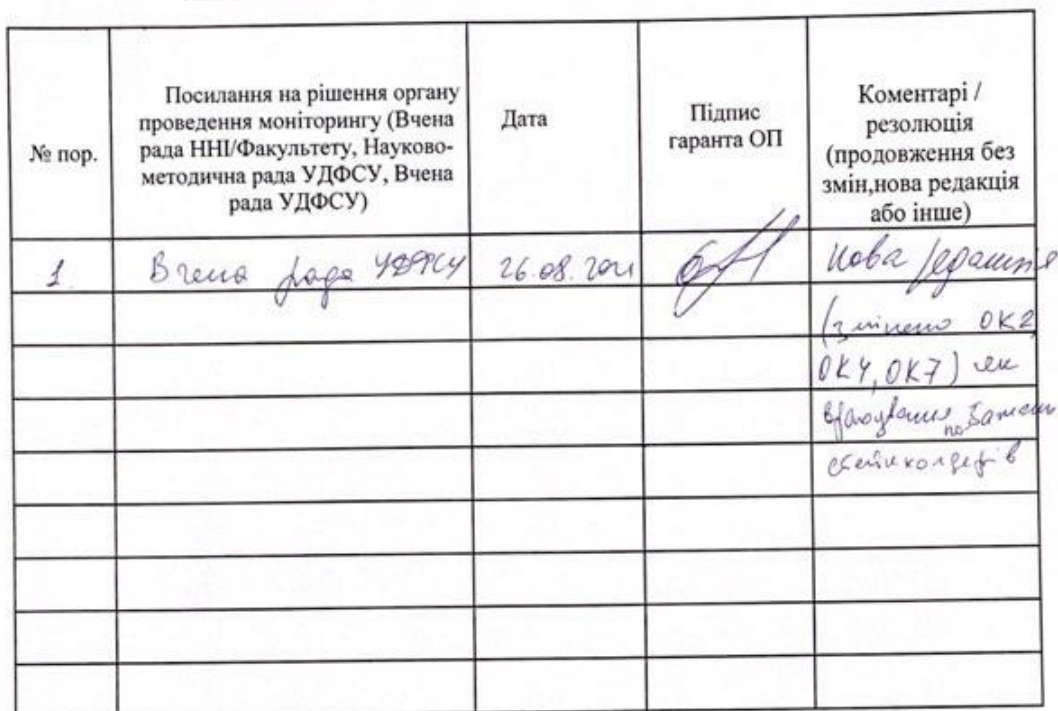 № пор.
Посилання на рішення органу
проведення моніторингу (Вчена
рада ННІ/Факультету, Науково-
методична рада УДФСУ, Вчена
рада УДФСУ)
Дата
Підпис
гаранта ОП
Коментарі /
резолюція
(продовження без
змін,нова редакція
або інше)
1.
Вчена рада УДФСУ
26.08.2021
Нова редакція
(змінено ОК2,
ОК4, ОК7) як
врахування побажань
стейкхолдерів